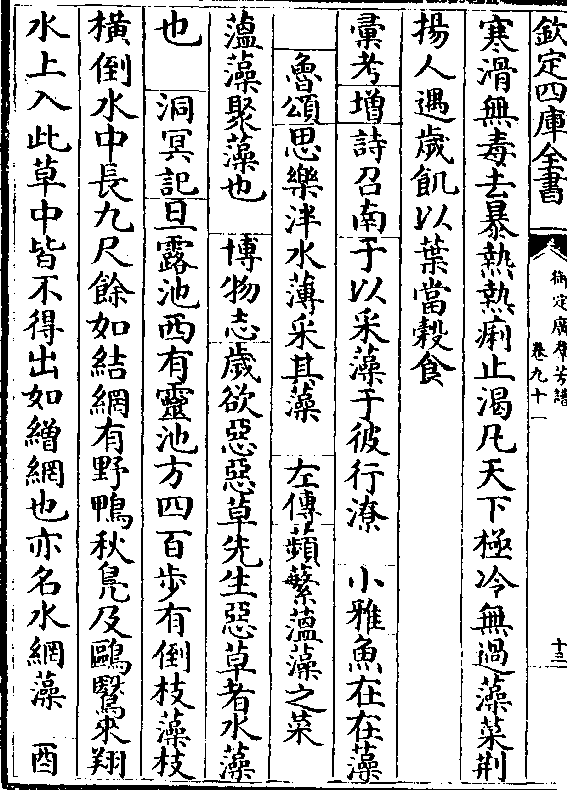 欽定四庫全書
御定廣羣芳譜
卷九十一
十三
寒滑無毒去暴熱熱痢止渴凡天下極冷無過藻菜荆
揚人遇歲飢以葉當穀食
彙考增詩召南于以采藻于彼行潦 小雅魚在在藻
魯頌思樂泮水薄采其藻 左傳蘋蘩薀藻之菜
薀藻聚藻也 博物志歲欲惡惡草先生惡草者水藻
也 洞冥記旦露池西有靈池方四百步有倒枝藻枝
橫倒水中長九尺餘如結網有野鴨秋鳧及鷗鷖來翔
水上入此草中皆不得出如繒網也亦名水網藻 酉